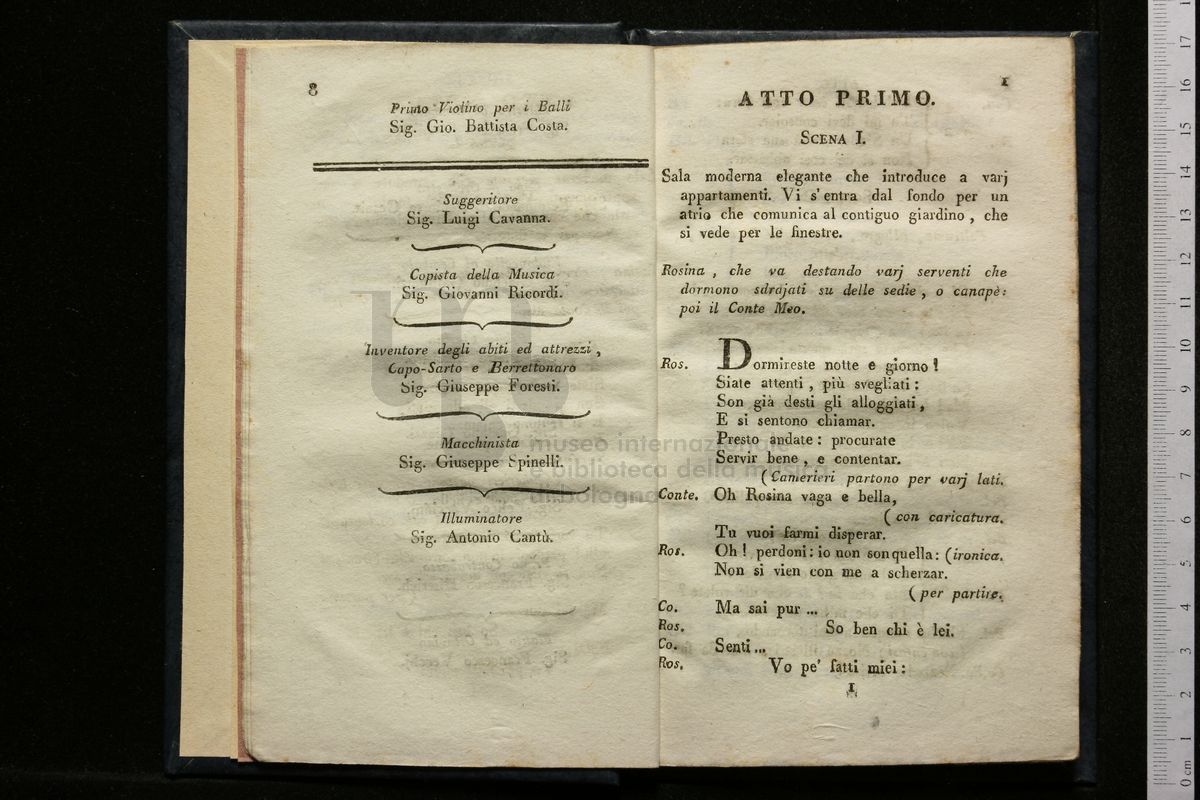 8
Primo Violino per i Balli
Sig. Gio. Battista Costa.
Suggeritore
Sig. Luigi Cavanna.
Copista della Musica
Sig. Giovanni Ricordi.
Inventore degli abiti ed attrezzi,
Capo-Sarto e Berrettonaro
Sig. Giuseppe Foresti.
Macchinista
Sig. Giuseppe Spinelli
Illuminatore
Sig. Antonio Cantù.
1
ATTO PRIMO.
SCENA I.
Sala moderna elegante che introduce a varj
appartamenti. Vi s'entra dal fondo per un
atrio che comunica al contiguo giardino, che
si vede per le finestre.
Rosina, che va destando varj serventi che
dormono sdrajati su delle sedie, o canapè:
poi il Conte Meo.
Ros. Dormireste notte e giorno!
Siate attenti, più svegliati:
Son già desti gli alloggiati,
E si sentono chiamar.
Presto andate: procurate
Servir bene, e contentar.
(Camerieri partono per varj lati.
Conte. Oh Rosina vaga e bella,
(con caricatura.
Tu vuoi farmi disperar.
Ros. Oh! perdoni: io non son quella: (ironica.
Non si vien con me a scherzar.
(per partire.
Co. Ma sai pur ...
Ros. So ben chi è lei.
Co. Senti...
Ros. Vo pe' fatti miei:
1
museo internazionale
e biblioteca della musica
di bologna
0 cm 1 2 3 4 5 6 7 8 9 10 11 12 13 14 15 16 17